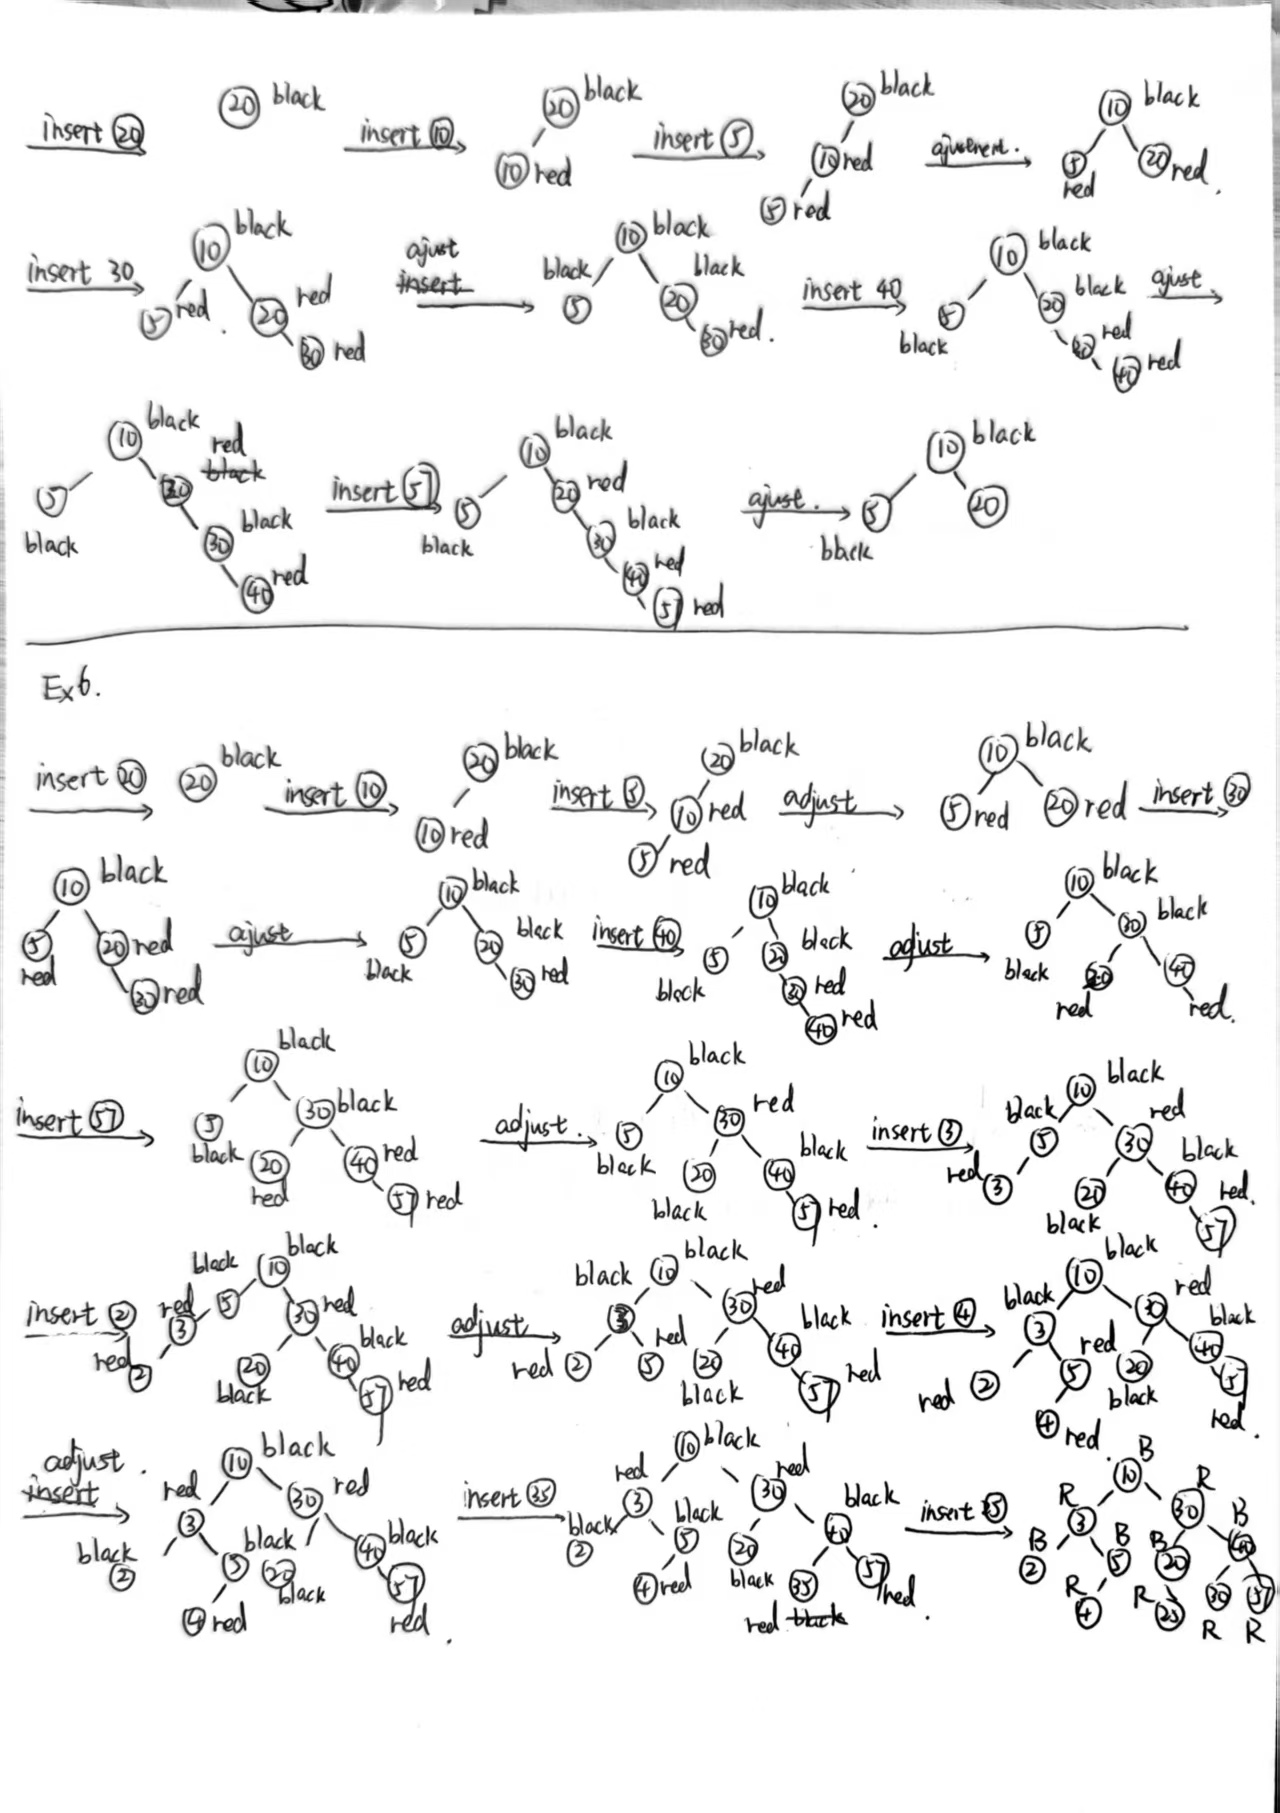 insert 20 20 black insert 10 20 black 10 red insert 5 20 black 10 red 5 red ajusement. 10 black 5 red 20 red.
insert 30 10 black 5 red. 20 red 30 red ajust insert 10 black black 5 black 20 30 red. insert 40 10 black 5 black 20 black 30 red 40 red ajust.
10 black red black 5 black 20 30 black 40 red insert 57 10 black 5 black 20 red 30 black 40 red 57 red ajust. 10 black 5 black 20
Ex6.
insert 20 20 black insert 10 20 black 10 red insert 5 20 black 10 red 5 red adjust 10 black 5 red 20 red insert 30
10 black 5 red 20 red 30 red ajust 10 black 5 black 20 black 30 red insert 40 10 black 5 black 20 black 30 red 40 red adjust 10 black 5 black 30 black 20 red 40 red.
insert 57 10 black 5 black 30 black 20 red 40 red 57 red adjust. 10 black 5 black 30 red 20 black 40 black 57 red. insert 3 10 black black 5 red 3 30 red 20 black 40 black 57 red.
insert 2 10 black black 5 red 3 red 2 30 red 20 black 40 black 57 red adjust 10 black black 3 red 2 5 red 30 red 20 black 40 black 57 red insert 4 10 black black 3 red 2 5 red 4 red. 30 red 20 black 40 black 57 red.
adjust. insert 10 black red 3 black 2 5 black 4 red 30 red 20 black 40 black 57 red. insert 35 10 black red 3 black 2 5 black 4 red 30 red 20 black 40 black 35 red black 57 red. insert 10 B R 3 B 2 5 B R 4 30 R B 20 R 25 40 B 30 R 57 R